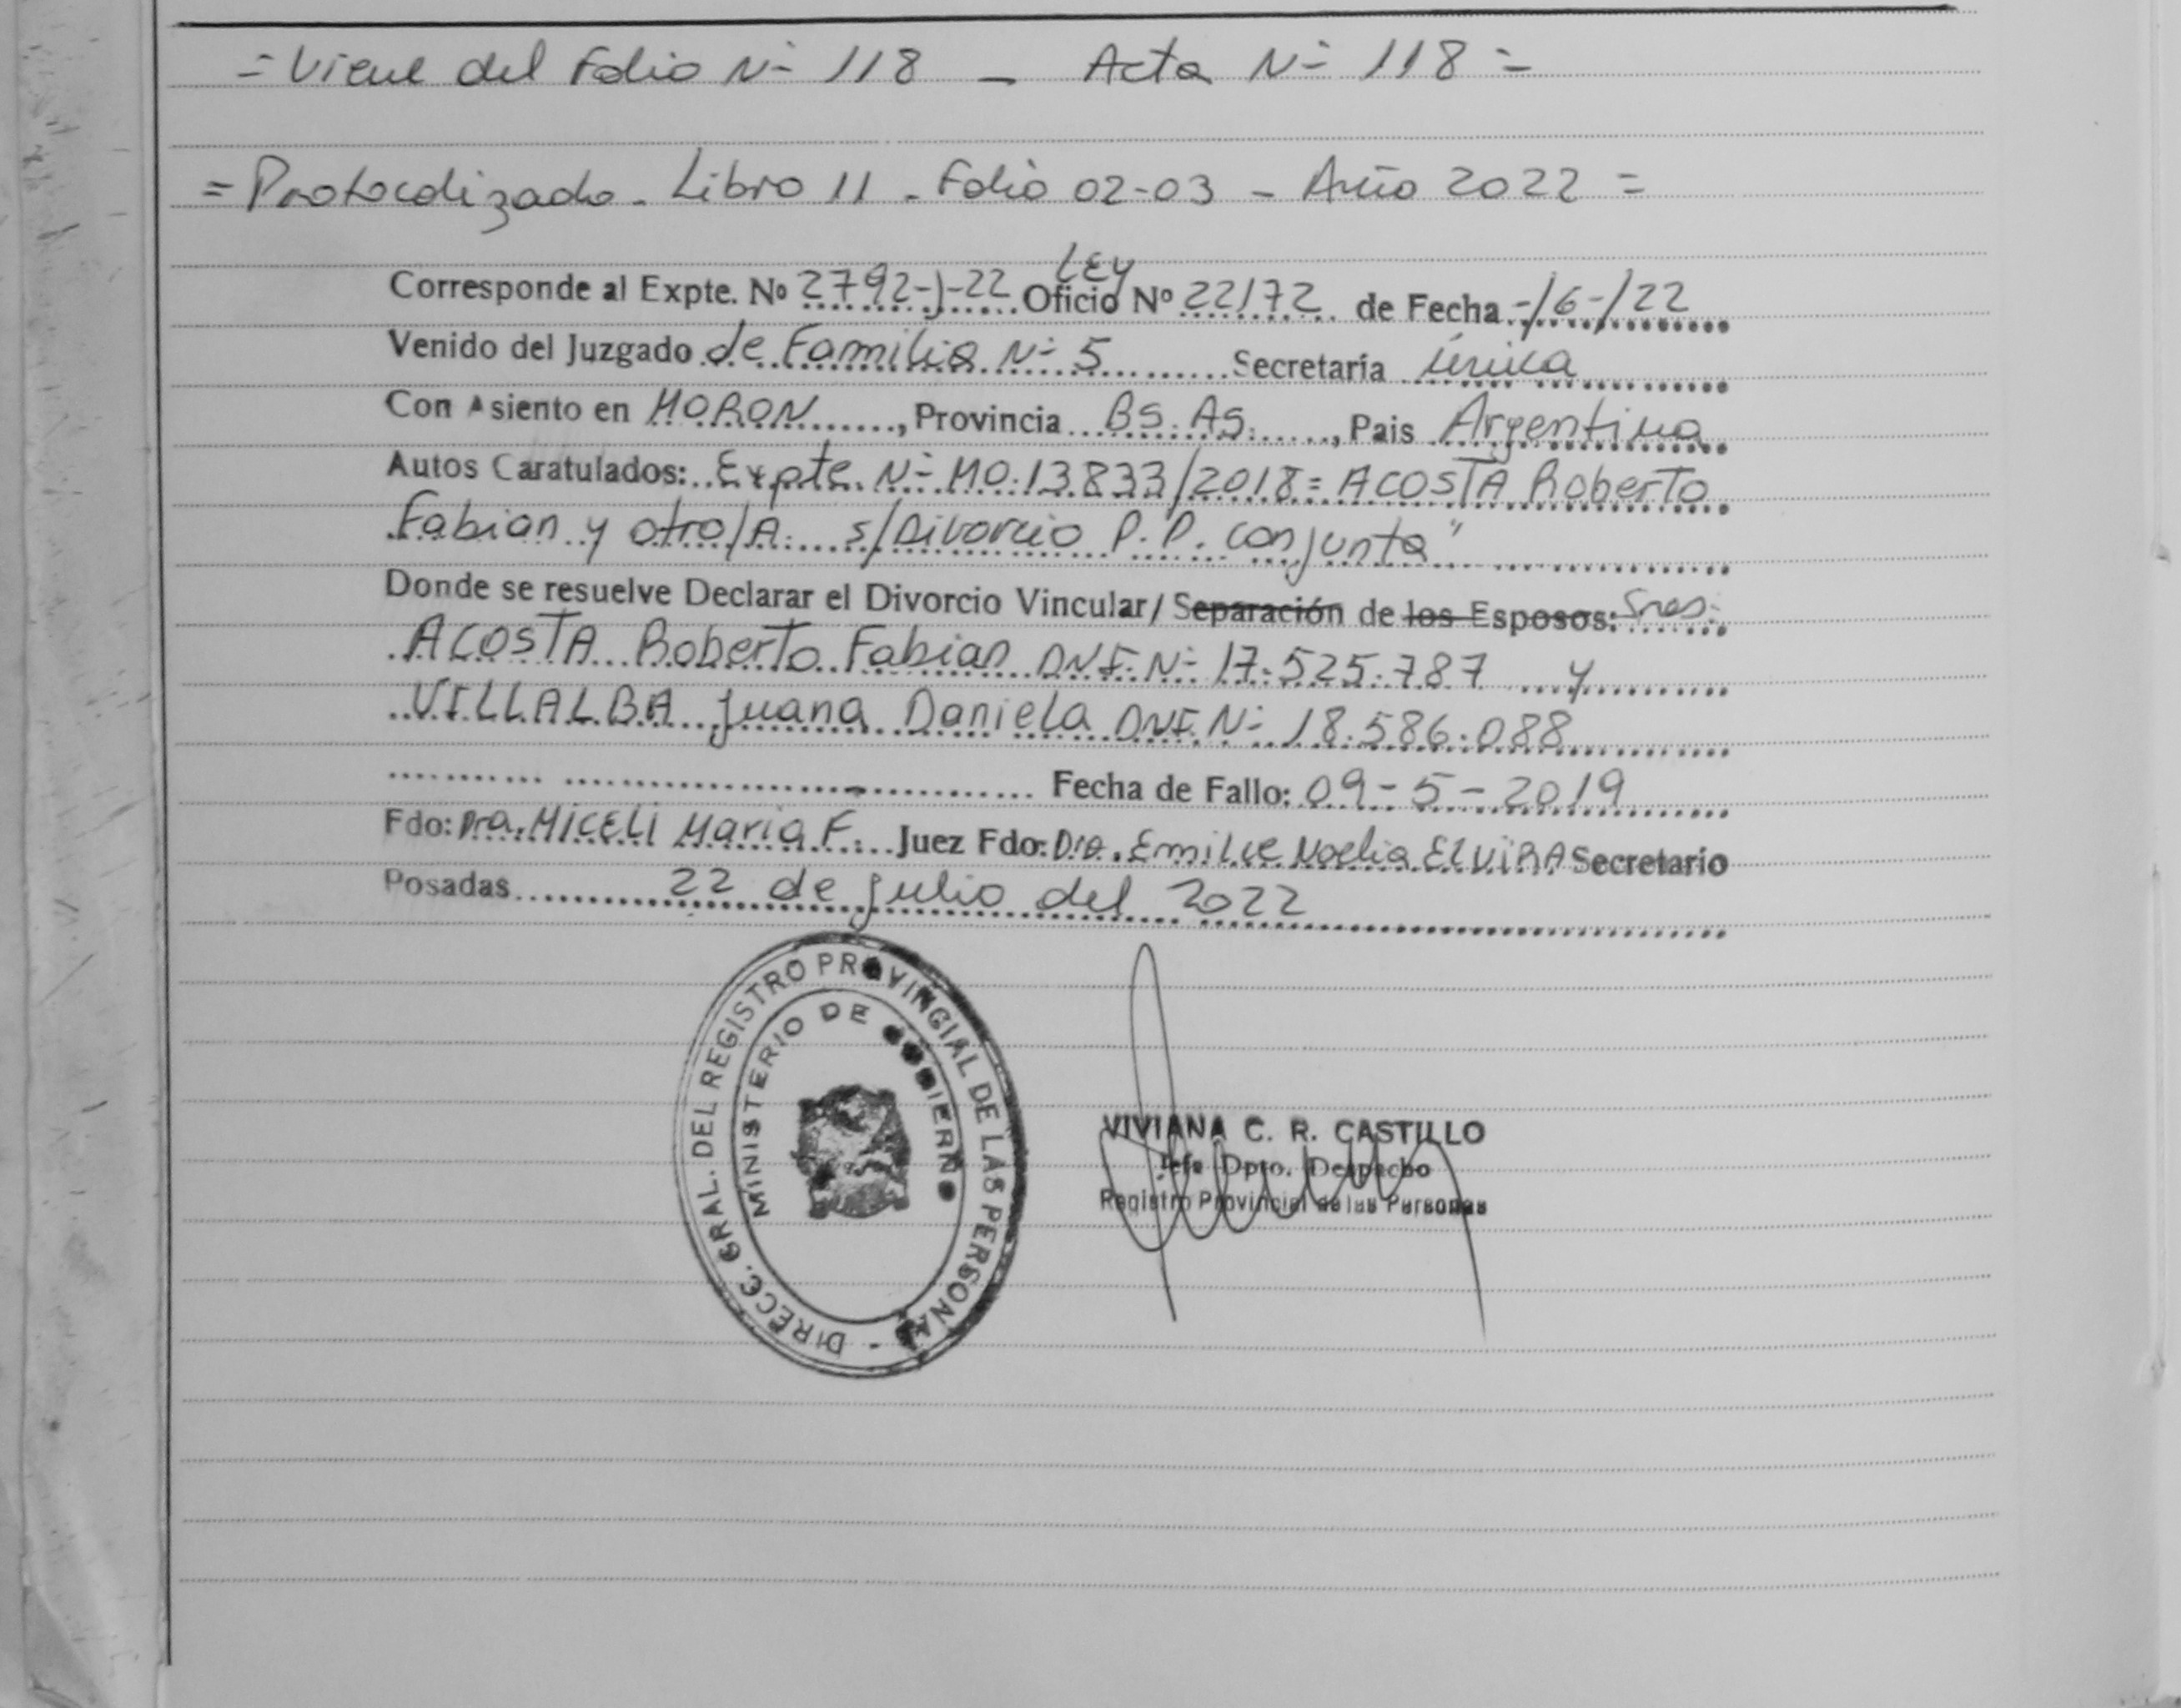 = Viene del Folio Nº 118 - Acta Nº 118 =
= Protocolizado - Libro 11 - Folio 02-03 - Año 2022 =
LEY
Corresponde al Expte. Nº 2792-J-22 Oficio Nº 22172 de Fecha -/6-/22
Venido del Juzgado de Familia Nº 5 Secretaría única
Con Asiento en MORON, Provincia BS. AS., Pais Argentina
Autos Caratulados: Expte. Nº MO.13833/2018= ACOSTA Roberto
Fabian y otro/A. s/Divorcio P.P. conjunta"
Donde se resuelve Declarar el Divorcio Vincular/ Separación de los Esposos: Sres.
ACOSTA Roberto Fabian DNI. Nº 17.525.787 y
VILLALBA Juana Daniela DNI. Nº 18.586.088
Fecha de Fallo: 09-5-2019
Fdo: Dra. MICELI Maria F. Juez Fdo: Dra. Emilce Noelia ELVIRA Secretario
Posadas 22 de julio del 2022
DIRECC. GRAL. DEL REGISTRO PROVINCIAL DE LAS PERSONAS -
MINISTERIO DE GOBIERNO
VIVIANA C. R. CASTILLO
Jefe Dpto. Despacho
Registro Provincial de las Personas